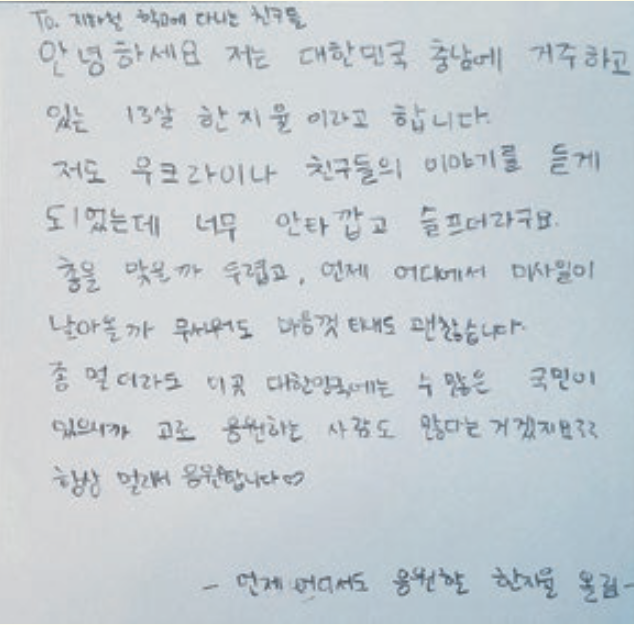 To. 지하철 학교에 다니는 친구들
안녕하세요 저는 대한민국 충남에 거주하고
있는 13살 한지율이라고 합니다.
저도 우크라이나 친구들의 이야기를 듣게
되었는데 너무 안타깝고 슬프더라구요.
총을 맞을까 두렵고, 언제 어디에서 미사일이
날아올까 무서워도 마음껏 티내도 괜찮습니다.
좀 멀더라도 이곳 대한민국에는 수 많은 국민이
있으니까 고로 응원하는 사람도 많다는 거겠지요??
항상 멀리서 응원합니다♡
- 언제 어디서도 응원할 한지율 올림 -